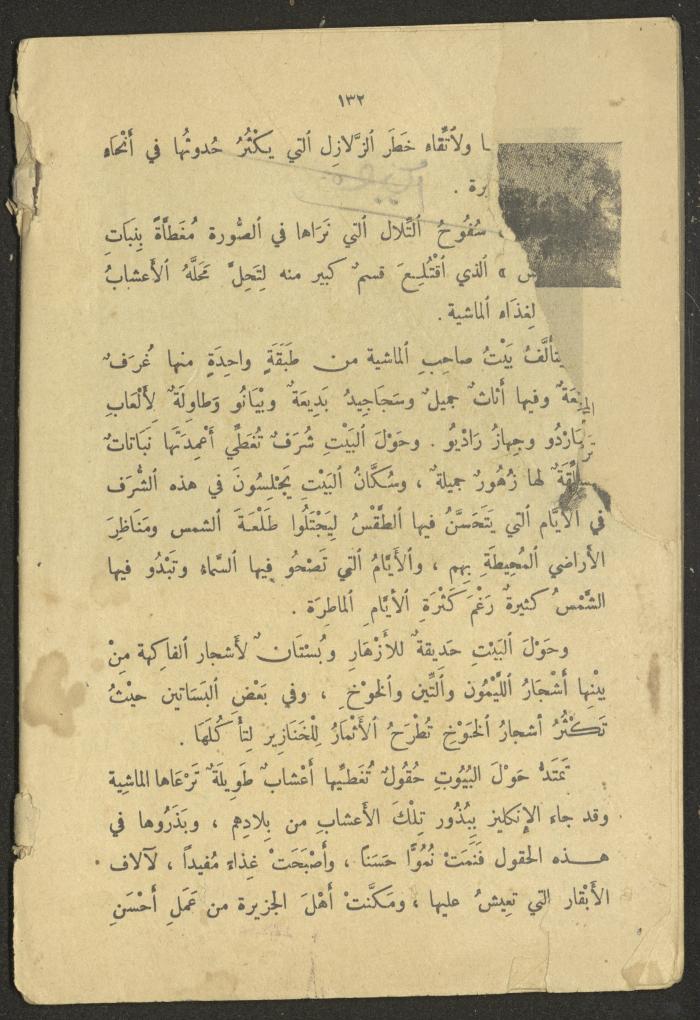 ١٣٢
ولاتِّقاء خَطَر الزَّلازِل التي يَكْثُرُ حُدوثُها في أَنْحاء
يرة .
سُفُوحُ التِّلال التي نَرَاها في الصُّورة مُغَطَّاةً بِنبَاتِ
» الذي اقْتُلِعَ قسمٌ كبير منه لِتَحِلَّ مَحَلَّهُ الأَعشابُ
لِغِذَاء الماشية .
يتأَلَّفُ بَيْتُ صاحِبِ الماشية من طَبَقَةٍ واحِدَةٍ منها غُرَفٌ
وفيها أَثاثٌ جميلٌ وسَجَاجِيدُ بَدِيعَةٌ وبْيَانُو وَطاوِلَةٌ لِأَلْعَابِ
وجِهازُ رَادْيُو . وحَوْلَ البَيْتِ شُرَفٌ تُغَطِّي أَعْمِدَتَها نَبَاتاتٌ
لها زُهُورٌ جميلةٌ ، وسُكَّانُ البَيْتِ يَجْلِسُونَ في هذه الشُّرَف
في الأَيَّام التي يَتَحَسَّنُ فيها الطَّقْسُ لِيَجْتَلُوا طَلْعَةَ الشمس ومَنَاظِرَ
الأَراضي المُحِيطَةِ بِهم ، والأَيَّامُ التي تَصْحُو فيها السَّماء وتَبْدُو فيها
الشَّمْسُ كثيرةٌ رَغْمَ كَثْرَةِ الأَيَّامِ الماطِرَة .
وحَوْلَ البَيْتِ حَديقةٌ للأَزْهَارِ وبُسْتَانٌ لأَشجار الفاكِهة مِنْ
بيْنِها أَشْجَارُ اللَّيْمُون والتِّين والخَوْخِ ، وفي بَعْضِ البَسَاتين حيْثُ
تَكْثُرُ أشجارُ الخَوْخِ تُطْرَحُ الأَثْمَارُ لِلْخَنَازِير لِتَأْكُلَهَا .
تَمْتَدُّ حَوْلَ البُيُوتِ حُقُولٌ تُغَطِّيها أَعْشابٌ طَوِيلَةٌ تَرْعَاها الماشِية
وقد جاء الإِنكليز بِبُذُور تِلْكَ الأَعشابِ من بِلادِهم ، وبَذَرُوها في
هـذه الحقول فَنَمَتْ نُمُوًّا حَسَناً ، وأَصْبَحَتْ غِذاءً مُفيداً ، لآلاف
الأَبْقار التي تعِيشُ عليها ، ومَكَّنتْ أَهْلَ الجزيرة من عَمَلِ أَحْسَنِ